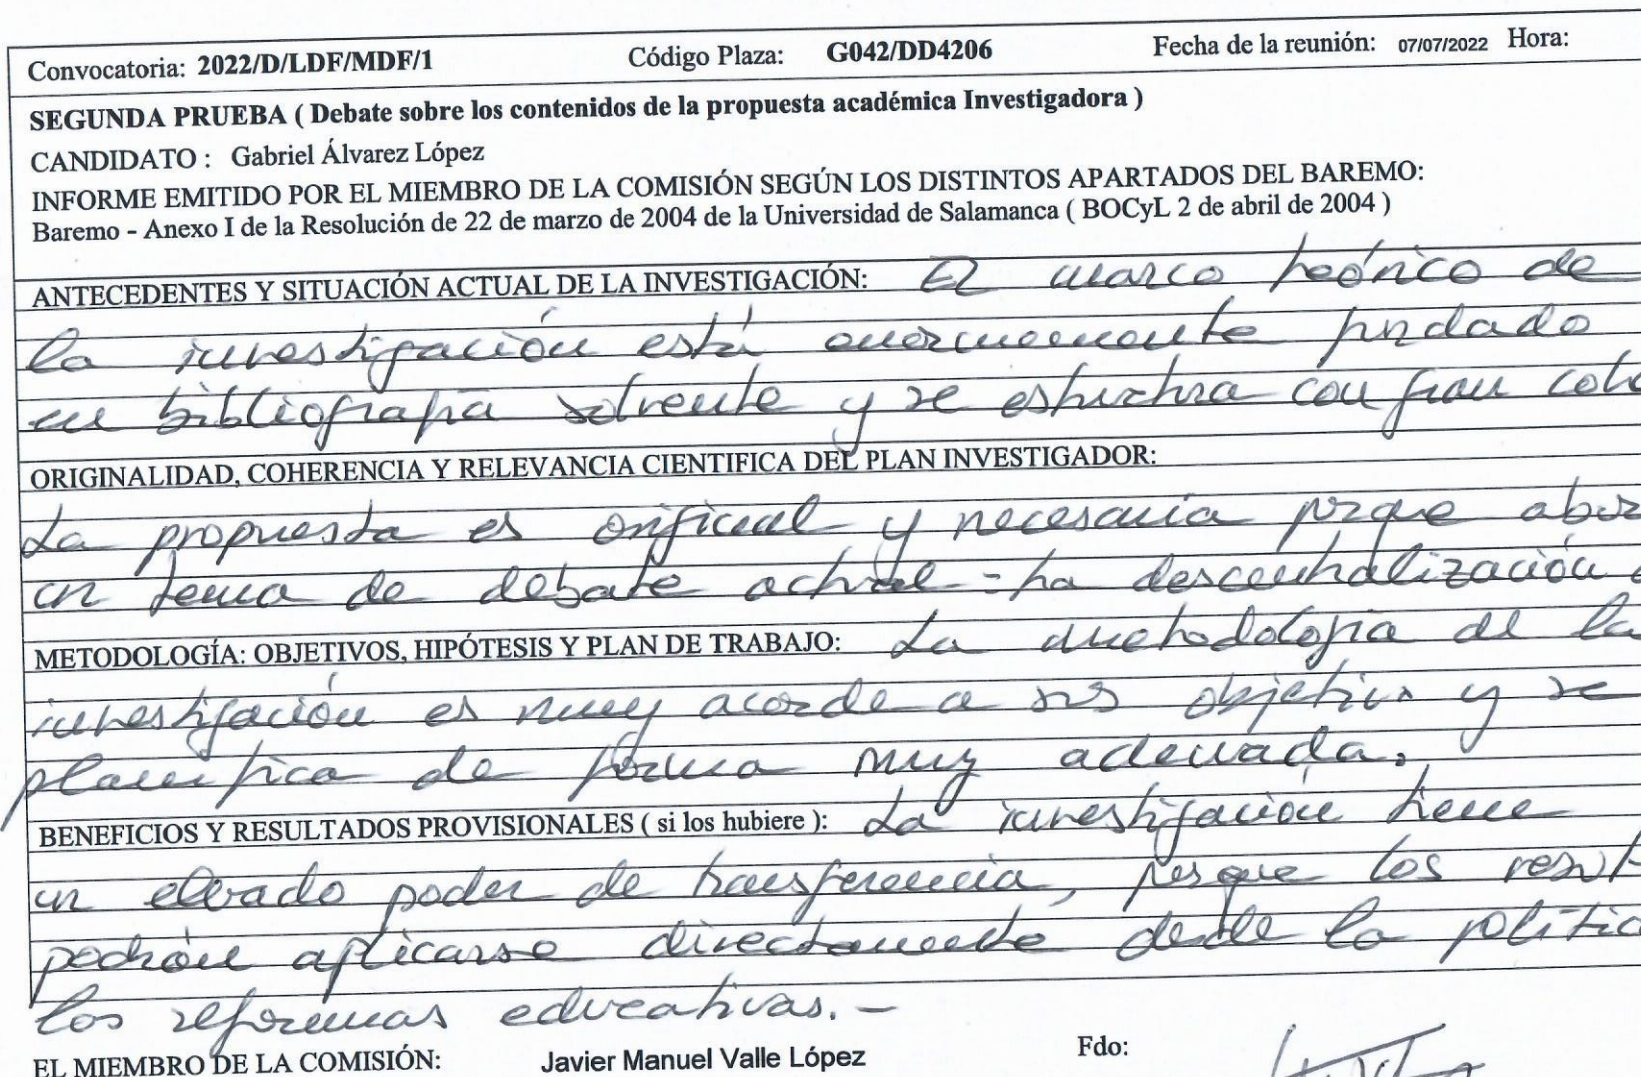 Convocatoria: 2022/D/LDF/MDF/1 Código Plaza: G042/DD4206 Fecha de la reunión: 07/07/2022 Hora:
SEGUNDA PRUEBA ( Debate sobre los contenidos de la propuesta académica Investigadora )
CANDIDATO : Gabriel Álvarez López
INFORME EMITIDO POR EL MIEMBRO DE LA COMISIÓN SEGÚN LOS DISTINTOS APARTADOS DEL BAREMO:
Baremo - Anexo I de la Resolución de 22 de marzo de 2004 de la Universidad de Salamanca ( BOCyL 2 de abril de 2004 )
ANTECEDENTES Y SITUACIÓN ACTUAL DE LA INVESTIGACIÓN: El marco teórico de
la investigación está enormemente fundado
en bibliografía solvente y se estructura con gran cohe
ORIGINALIDAD, COHERENCIA Y RELEVANCIA CIENTIFICA DEL PLAN INVESTIGADOR:
La propuesta es original y necesaria porque abor
un tema de debate actual - la descentralización
METODOLOGÍA: OBJETIVOS, HIPÓTESIS Y PLAN DE TRABAJO: La metodología de la
investigación es muy acorde a sus objetivos y se
planifica de forma muy adecuada.
BENEFICIOS Y RESULTADOS PROVISIONALES ( si los hubiere ): La investigación tiene
un elevado poder de transferencia, porque los result
podrán aplicarse directamente desde la política
los reformas educativas. -
EL MIEMBRO DE LA COMISIÓN: Javier Manuel Valle López Fdo: